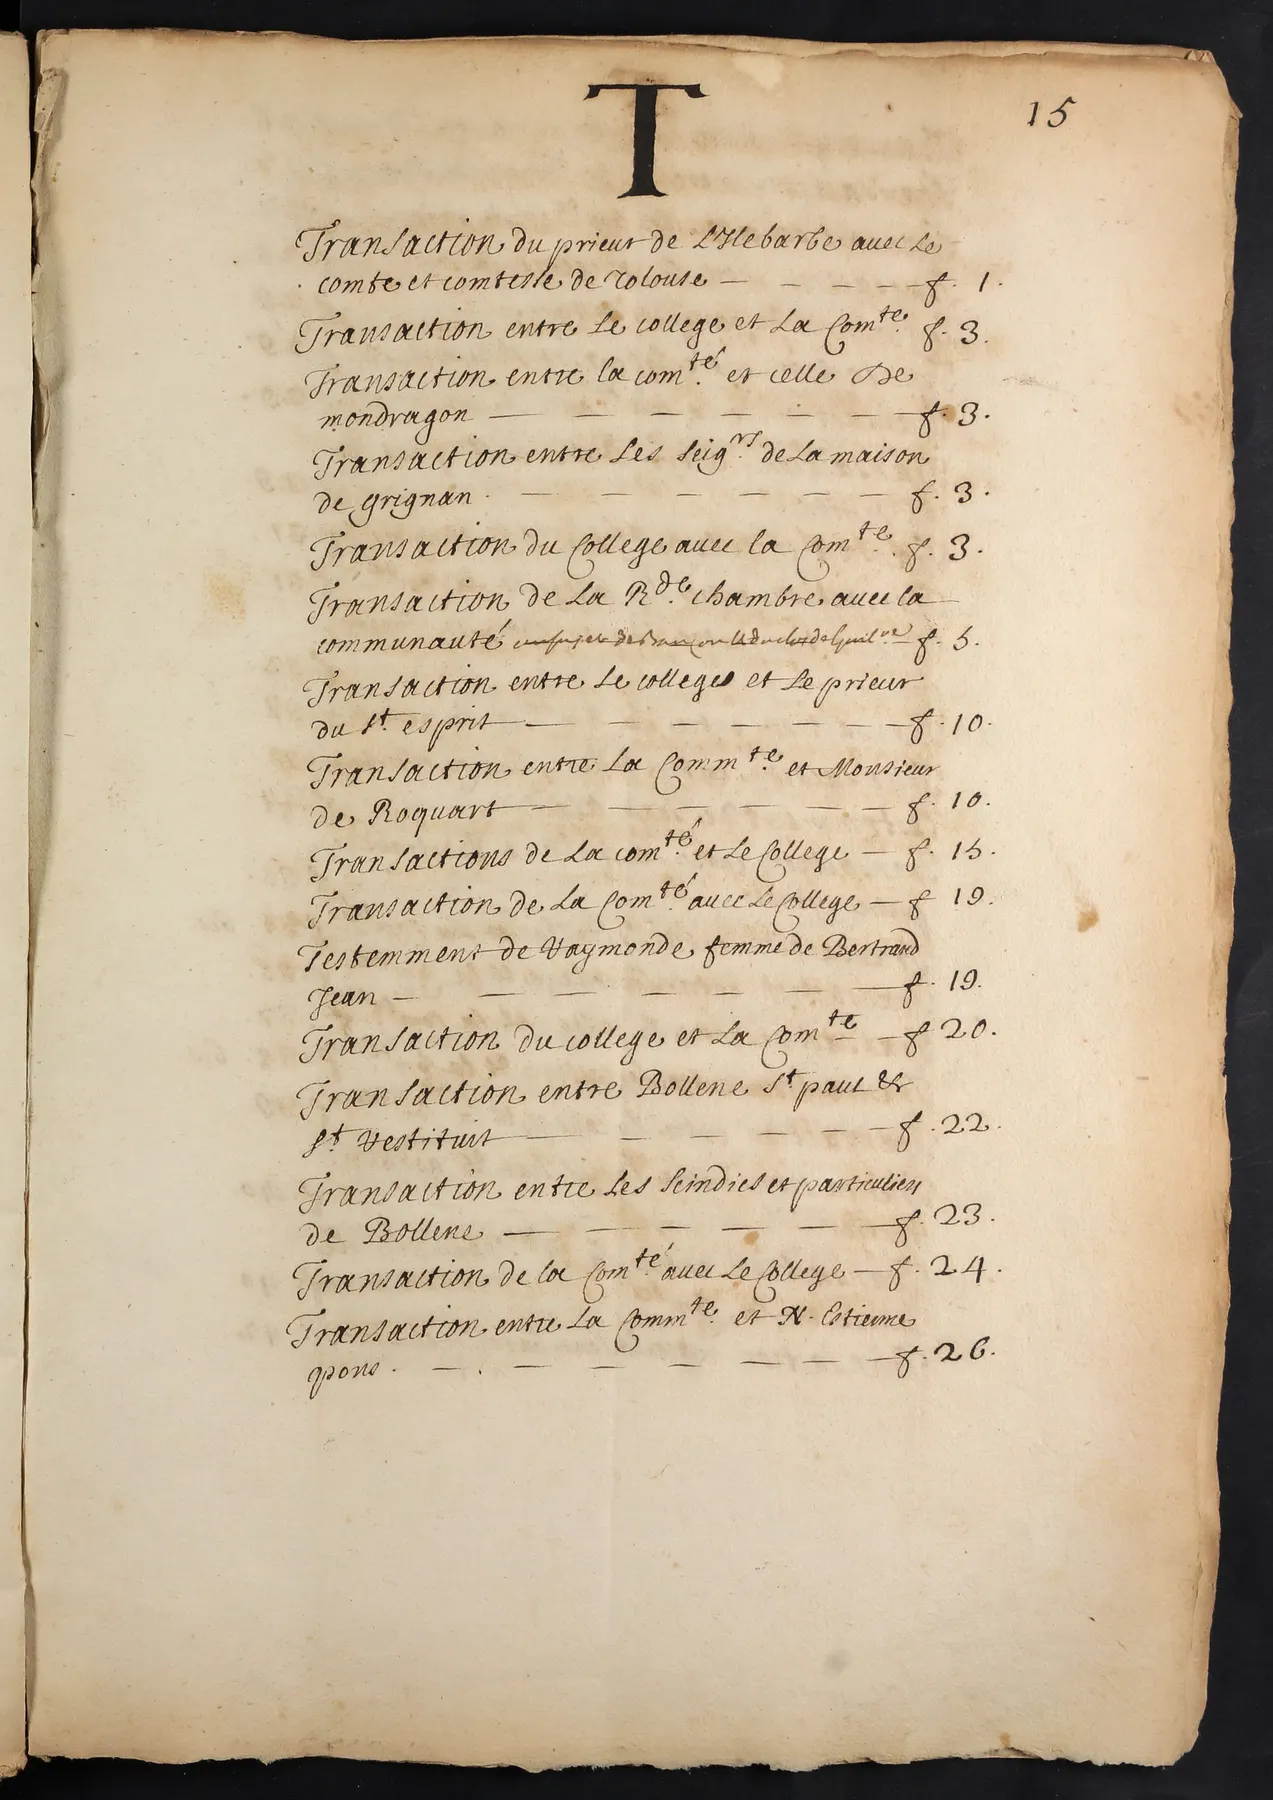 T
15
Transaction du prieur de L'Ilebarbe avec Le
comte et comtesse de Tolouse — — — — f. 1.
Transaction entre Le college et La Com.te f. 3.
Transaction entre la com.té et celle De
mondragon — — — — — — f. 3.
Transaction entre Les Seig.rs de La maison
de grignan. — — — — — — f. 3.
Transaction du College avec la Com.te f. 3.
Transaction de La R.de chambre avec la
communauté f. 5.
Transaction entre Le college et Le prieur
du St. esprit — — — — — — f. 10.
Transaction entre La Comm.te et Monsieur
de Roquart — — — — — — f. 10.
Transactions de La com.té et Le College — f. 15.
Transaction de La Com.té avec Le College — f 19.
Testemment de Raymonde femme de Bertrand
Jean — — — — — — f. 19.
Transaction du college et La Com.te — f 20.
Transaction entre Bollene St. paul &
St. Restituit — — — — — f. 22.
Transaction entre Les Seindics et particuliers
de Bollene — — — — — f. 23.
Transaction de la Com.té avec Le College — f. 24.
Transaction entre La Comm.te et N. Estienne
pons. — — — — — — f. 26.